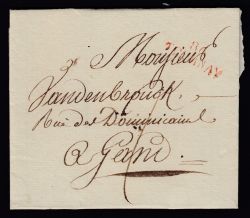 Monsieur
Vandenbrouck
Rue des Dominicains
a Gand.